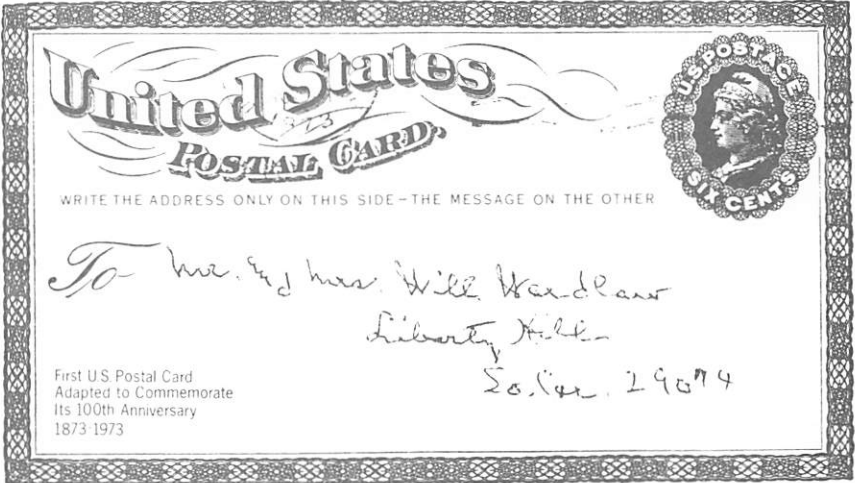 United States
POSTAL CARD.
U.S. POSTAGE
SIX CENTS
WRITE THE ADDRESS ONLY ON THIS SIDE—THE MESSAGE ON THE OTHER
To Mr. & Mrs. Will Wardlaw
Liberty Hill
So. Car. 29074
First U.S. Postal Card
Adapted to Commemorate
Its 100th Anniversary
1873-1973